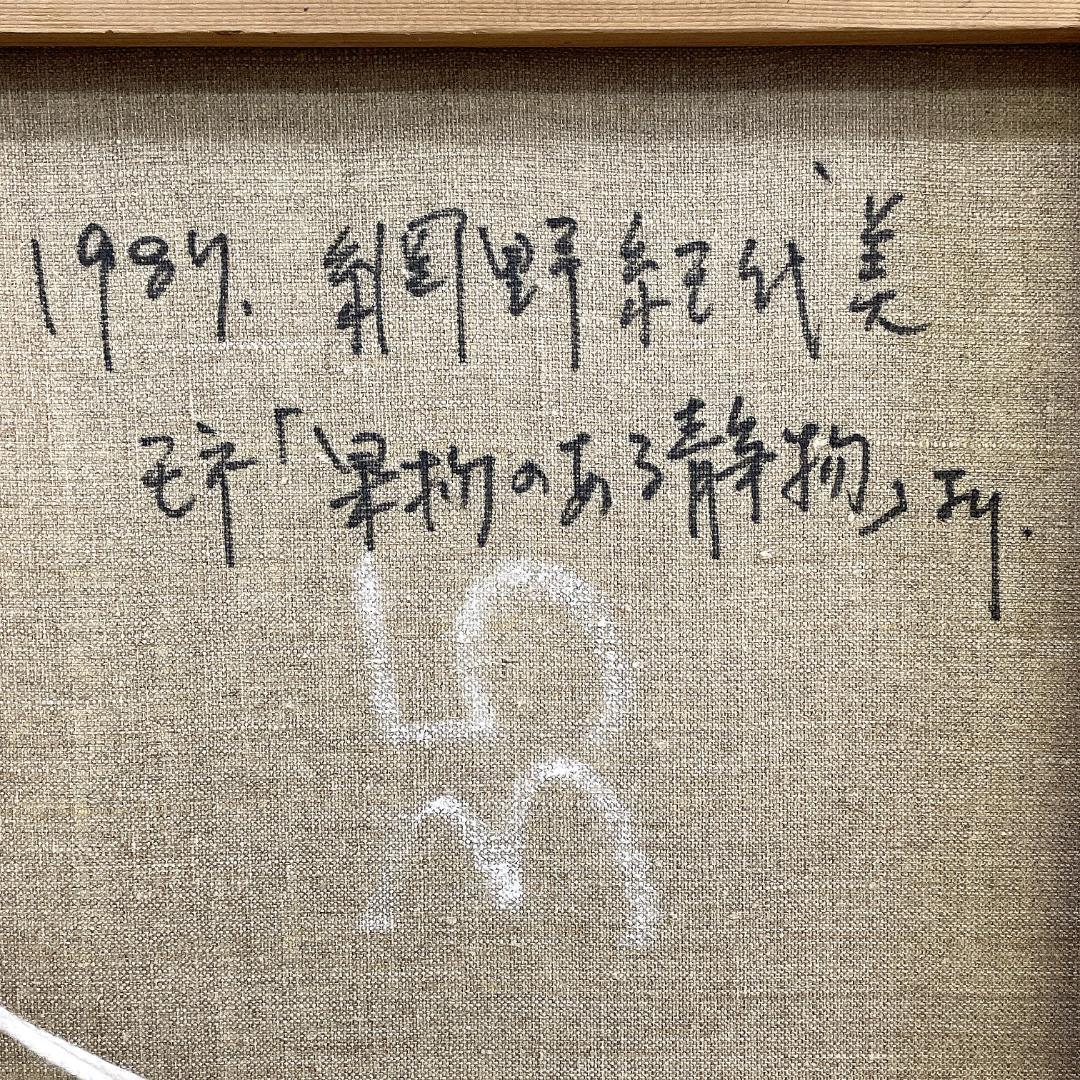 1987. 網野紀代美
モネ「果物のある静物」より.
53